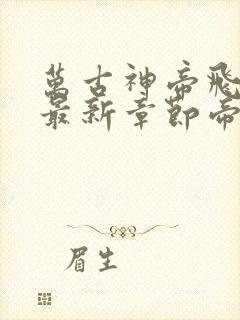 萬古神帝飛
最新章節帝
眉生